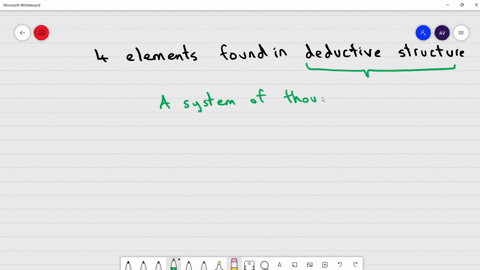 Microsoft Whiteboard
AV
4 elements found in deductive structure
A system of thou
A